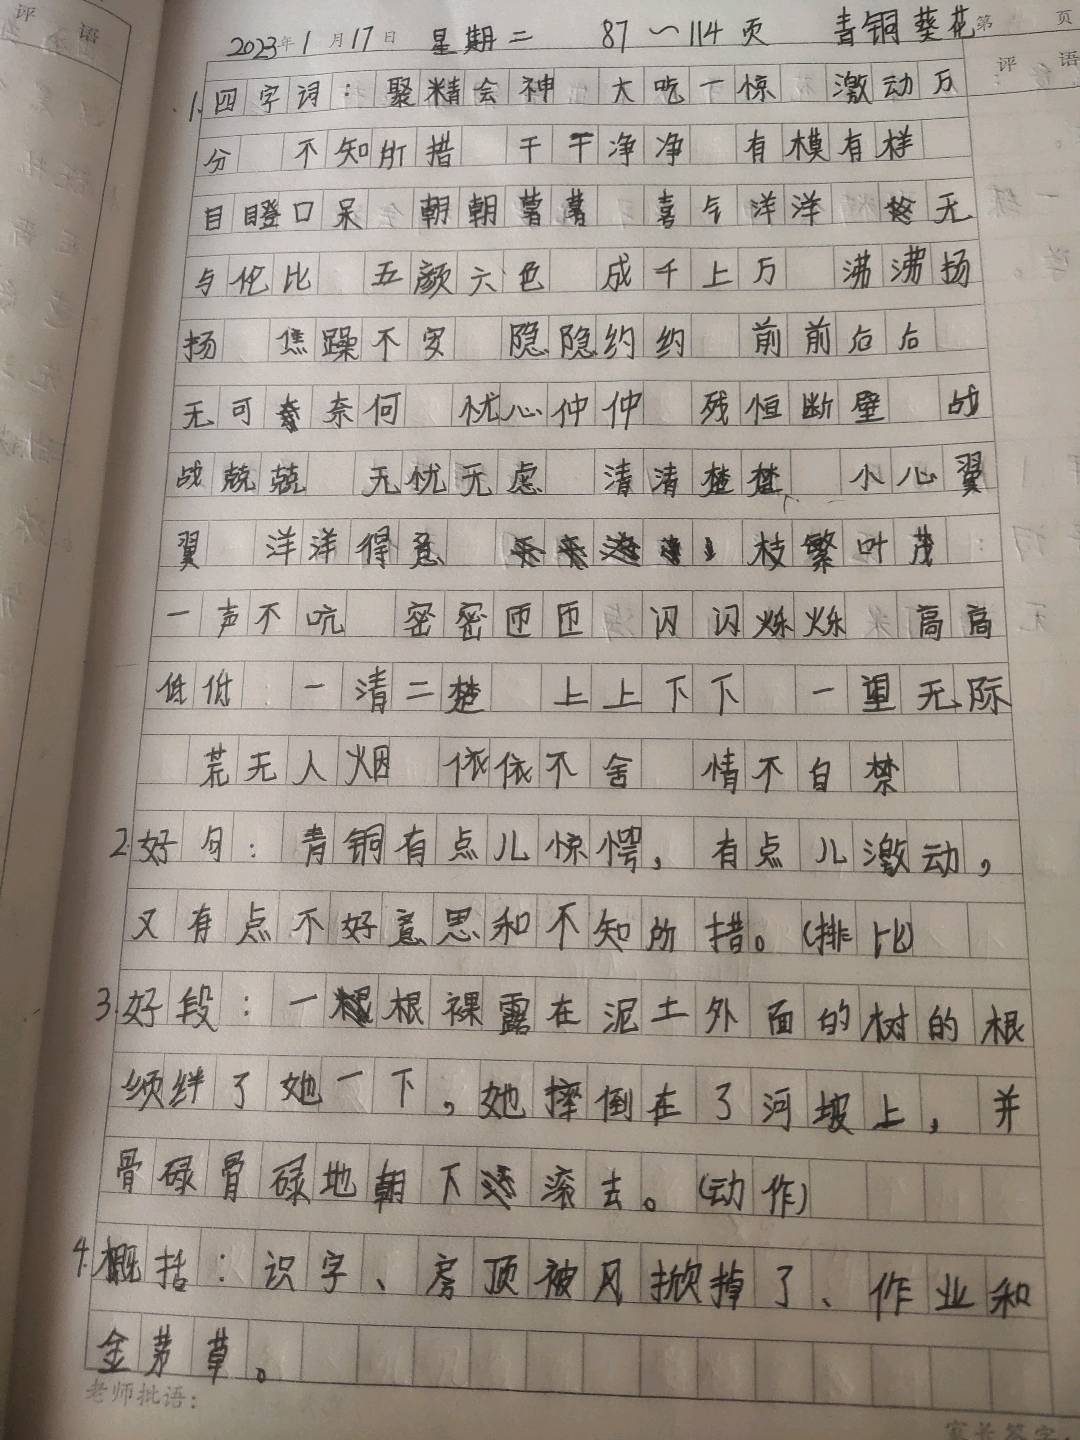 评语
2023年1月17日 星期二 87～114页 青铜葵花 第 页
评语
1.四字词：聚精会神 大吃一惊 激动万
分 不知所措 干干净净 有模有样
目瞪口呆 朝朝暮暮 喜气洋洋 无
与伦比 五颜六色 成千上万 沸沸扬
扬 焦躁不安 隐隐约约 前前后后
无可奈何 忧心忡忡 残恒断壁 战
战兢兢 无忧无虑 清清楚楚 小心翼
翼 洋洋得意 枝繁叶茂
一声不吭 密密匝匝 闪闪烁烁 高高
低低 一清二楚 上上下下 一望无际
荒无人烟 依依不舍 情不自禁
2.好句：青铜有点儿惊愕，有点儿激动，
又有点不好意思和不知所措。(排比)
3.好段：一根裸露在泥土外面的树的根
须绊了她一下，她摔倒在了河坡上，并
骨碌骨碌地朝下滚去。(动作)
4.概括：识字、房顶被风掀掉了、作业和
金茅草。
老师批语：
家长签字：